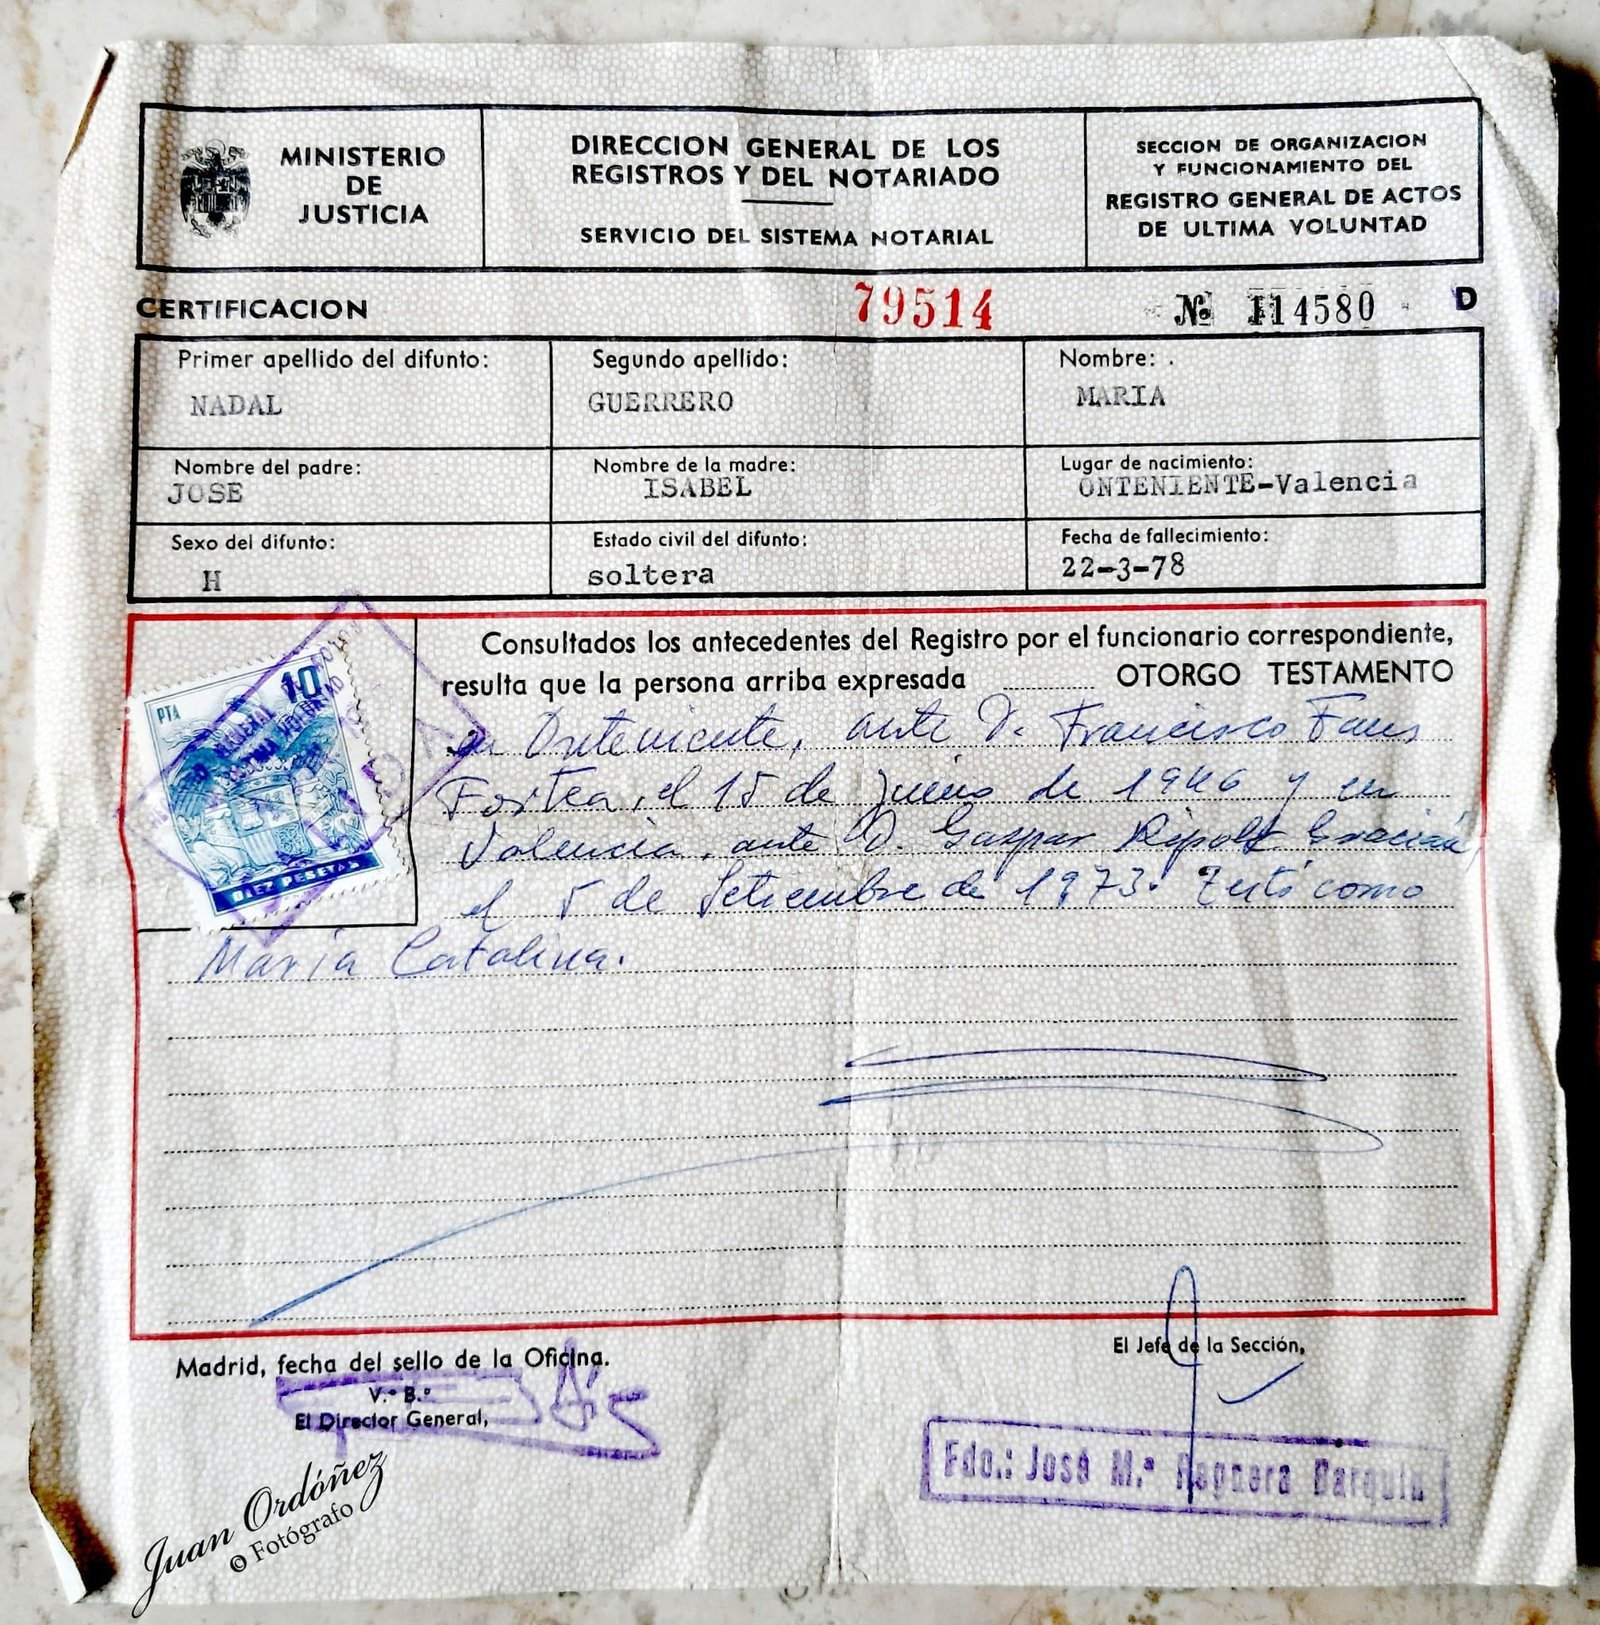 MINISTERIO
DE
JUSTICIA
DIRECCION GENERAL DE LOS
REGISTROS Y DEL NOTARIADO
SERVICIO DEL SISTEMA NOTARIAL
SECCION DE ORGANIZACION
Y FUNCIONAMIENTO DEL
REGISTRO GENERAL DE ACTOS
DE ULTIMA VOLUNTAD
CERTIFICACION
79514
Nº 114580 D
Primer apellido del difunto:
NADAL
Segundo apellido:
GUERRERO
Nombre:
MARIA
Nombre del padre:
JOSE
Nombre de la madre:
ISABEL
Lugar de nacimiento:
ONTENIENTE-Valencia
Sexo del difunto:
H
Estado civil del difunto:
soltera
Fecha de fallecimiento:
22-3-78
10
PTA
DIEZ PESETAS
Consultados los antecedentes del Registro por el funcionario correspondiente,
resulta que la persona arriba expresada OTORGO TESTAMENTO
en Onteniente, ante D. Francisco Faus
Fortea, el 15 de Junio de 1946 y en
Valencia, ante D. Gaspar Ripoll
el 5 de Setiembre de 1973. Testó como
María Catalina.
Madrid, fecha del sello de la Oficina.
V.º B.º
El Director General,
El Jefe de la Sección,
Fdo.: José M.ª Reguera
Juan Ordóñez
© Fotógrafo